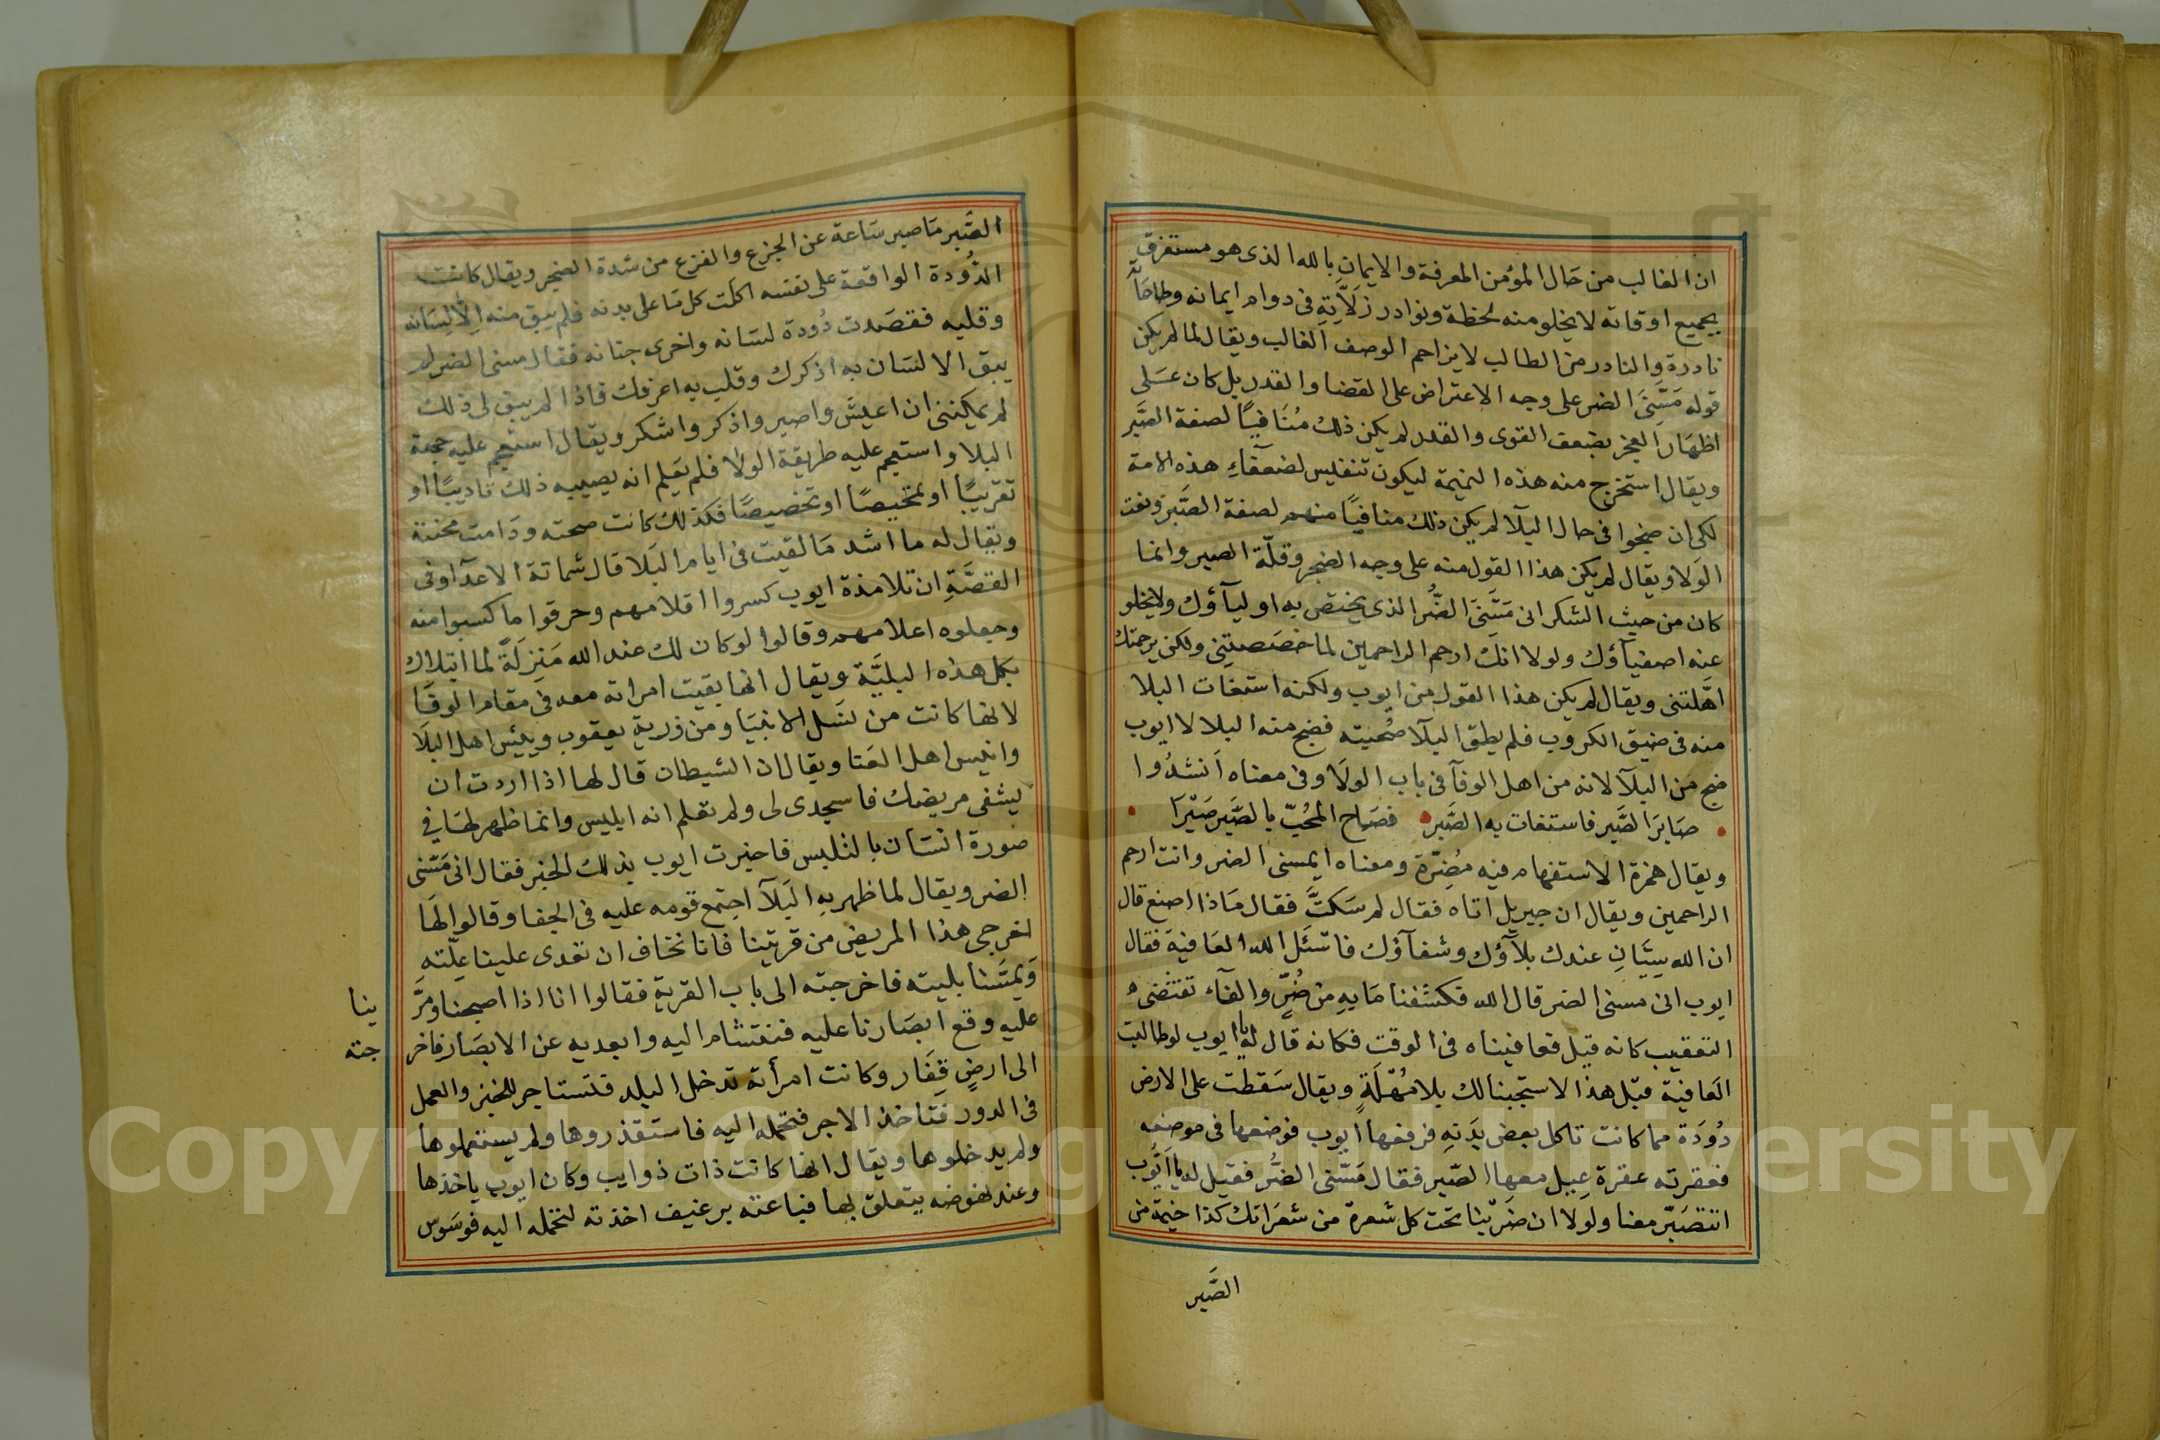 ان الغالب من حَال المؤمن المعرفة والايمانِ بالله الذى هو مستغرق
بجميع اوقاته لا يخلو منه لحظة ونوادر زَلّاتِهِ فى دوام ايمانه وطاعَاته
نادرة والنادر من الطالب لا يزاحم الوصف الغالب ويقال لما لم يكن
قوله مَسَّنِىَ الضر على وجه الاعتراض على القضا والقدر بل كان عَلى
اظهَار العجز بضعف القوى والقدر لم يكن ذلك مُنَافيًا لصفة الصَّبر
ويقال استخرج منه هذه النميمة ليكون تنفليس لضعفآءِ هذه الامة
لكى ان ضجوا فى حال البلآ لم يكن ذلك منافيًا منهم لصفة الصَّبر ونعت
الوَلا ويقال لم يكن هذا القول منه على وجه الضجر وقلّة الصبر وانما
كان من حيث الشكر انى مَسَّنِىَ الضُّر الذى يختص به اوليآؤك ولا يخلو
عنه اصفيآؤك ولولا انك ارحم الراحمين لما خصَصتِنى ولكن برحمتك
اهَّلتنى ويقال لم يكن هذا القول من ايوب ولكنه استغاث البلا
منه فى ضيق الكروب فلم يطق البلآ صُحبته فضج منه البلا لا ايوب
ضج من البلآ لانه من اهل الوفآ فى باب الولَا وفى معناه اَنشدُوا
صَابرَ الصَّبر فاستغاث به الصَّبر فصَاح المُحبّ بالصَّبر صَبْرَا
ويقال همزة الاستفهام فيه مُضِرّة ومعناه ايمسنى الضر وانت ارحم
الراحمين ويقال ان جبريل اتاه فقال لم سَكتَّ فقال مَاذا اصنع قال
ان الله سِيَّانِ عندك بلآؤك وشفآؤك فاسْئَل الله العَافية فقال
ايوب انى مسنى الضر قال الله فكشفنا مَا بِهِ مِن ضُرٍّ والفآء تقتضى
التعقيب كانه قيل فعافيناه فى الوقت فكانه قال له يا ايوب لو طالبت
العَافية قبل هذا لاستجبنا لك بلا مُهّلَةٍ ويقال سَقطت على الارض
دُودَة مما كانت تاكل بعض بَدَنِهِ فرفعها ايوب فوضعها فى موضعه
فعقرته عقرة عِيل معها الصّبر فقال مَسَّنى الضُّر فقيل له يا اَيُّوب
اتتصَبّر معنا ولولا ان ضَرّبنا تحت كل شعرة من شعَراتك كذا خيمَة من
الصَّبر
الصَّبر مَا صبر سَاعة عن الجزع والفزع من شدة الضجر ويقال كانت
الدُّودة الواقعة على نفسه اكلَت كل مَا على بدنه فلم يبق منه اِلّا لِسَانه
وقلبه فقصَدت دُودة لسَانه واخرى جنانه فقال مسنى الضر لم
يبق الا لسَان به اذكرك وقلب به اعرفك فاذا لم يبق لى ذلك
لم يمكننى ان اعيش واصبر واذكر واشكر ويقال استعجم عليه جهة
البلا واستعجم عليه طريقة الولا فلم يَعلم انه يصيبه ذلك تاديبًا او
تقريبًا او تمحيصًا او تخصيصًا فكذلك كانت صحته ودَامت محنته
ويقال له ما اشد مَا لقيت فى ايام البَلا قال شماتة الاعدآ وفى
القصَّةِ ان تلامذة ايوب كسروا اقلامهم وحرقوا ما كسبوا منه
وجعلوه اعلامهم وقالوا لو كان لك عند الله مَنِزلَةً لما ابتلاك
بكل هذه البليَّة ويقال انها بقيت امراته معه فى مقام الوفَا
لانها كانت من نسَل الانبيَا ومن ذرية يعقوب وبئس اهل البلَا
وانيس اهل العَنا ويقال ان الشيطان قال لها اذا اردت ان
يشفى مريضك فاسجدى لى ولم تعلم انه ابليس وانما ظهر لهَا فى
صُورة انسَان بالتلبيس فاخبرت ايوب بذلك الخبر فقال انى مَسّنى
الضر ويقال لما ظهر بهِ البَلآ اجتمع قومه عليه فى الجفا وقالوا لهَا
اخرجى هذا المريض من قريتنا فانا نخاف ان تعدى علينا عِلّته
وَيمسَّنا بليته فاخرجته الى باب القرية فقالوا انا اذا اصبحنا ومَرَّ ينا
عليه وقع ابصَارنا عليه فنتشام اليه وابعديه عن الابصَار فاخر جته
الى ارضٍ قَفَار وكانت امرأته تدخل البلد فتَستاجر للخبز والعمل
فى الدور فتَاخذ الاجر فتحمله اليه فاستقذروها ولم يستعملوها
ولم يدخلوها ويقال انها كانت ذات ذوايب وكان ايوب ياخذها
وعند نهوضه يتعلق بها فباعته برغيف اخذته لتحمله اليه فوسَوس